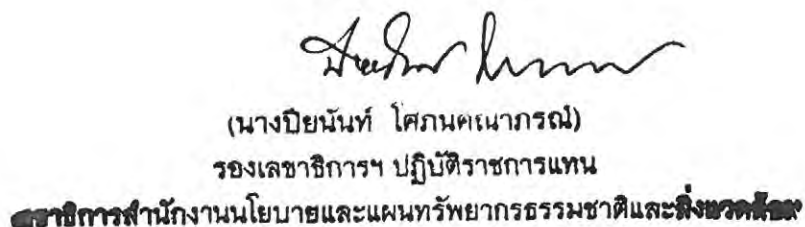 (นางปิยนันท์ โศภนคณาภรณ์)
รองเลขาธิการฯ ปฏิบัติราชการแทน
เลขาธิการสำนักงานนโยบายและแผนทรัพยากรธรรมชาติและสิ่งแวดล้อม